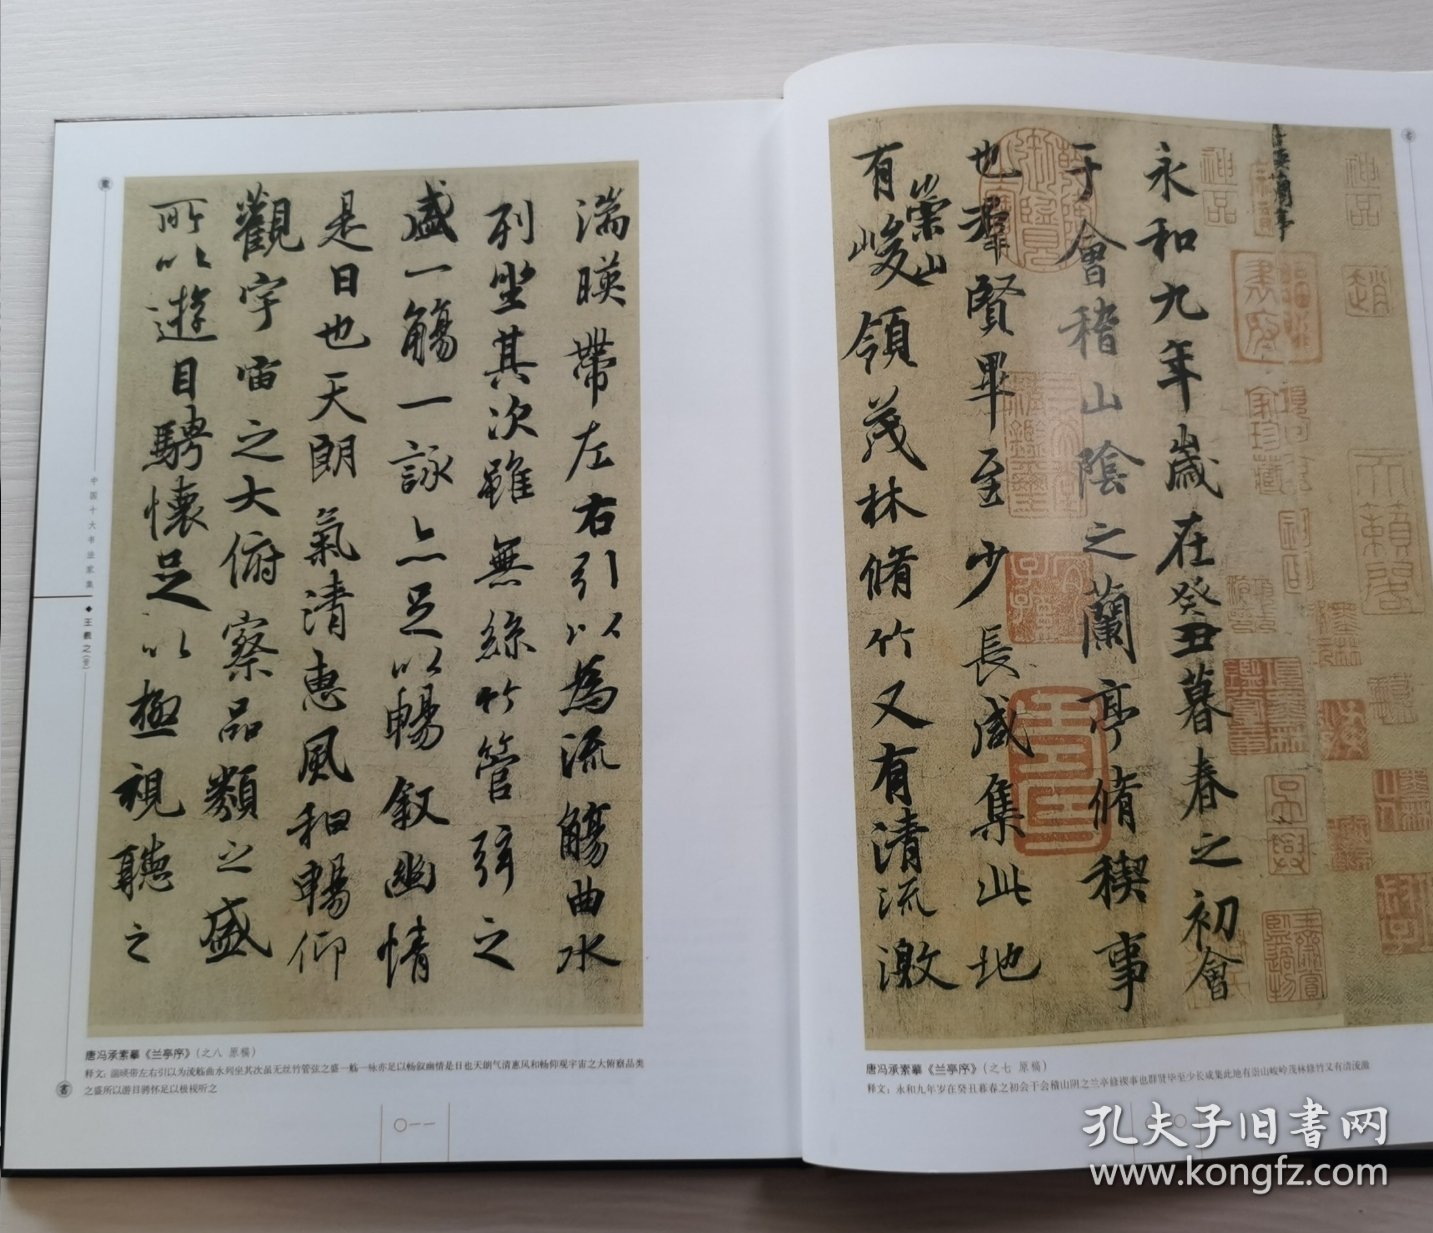 永和九年歲在癸丑暮春之初會
于會稽山陰之蘭亭脩稧事
也羣賢畢至少長咸集此地
有崇山峻領茂林脩竹又有清流激
唐冯承素摹《兰亭序》(之七 原稿)
释文：永和九年岁在癸丑暮春之初会于会稽山阴之兰亭修禊事也群贤毕至少长咸集此地有崇山峻岭茂林修竹又有清流激
湍暎帶左右引以為流觴曲水
列坐其次雖無絲竹管弦之
盛一觴一詠亦足以暢叙幽情
是日也天朗氣清惠風和暢仰
觀宇宙之大俯察品類之盛
所以遊目騁懷足以極視聽之
唐冯承素摹《兰亭序》(之八 原稿)
释文：湍暎带左右引以为流觞曲水列坐其次虽无丝竹管弦之盛一觞一咏亦足以畅叙幽情是日也天朗气清惠风和畅仰观宇宙之大俯察品类
之盛所以游目骋怀足以极视听之
中国十大书法家集◆王羲之(壹)
〇一一
神品
神品
趙
孔夫子旧书网
www.kongfz.com